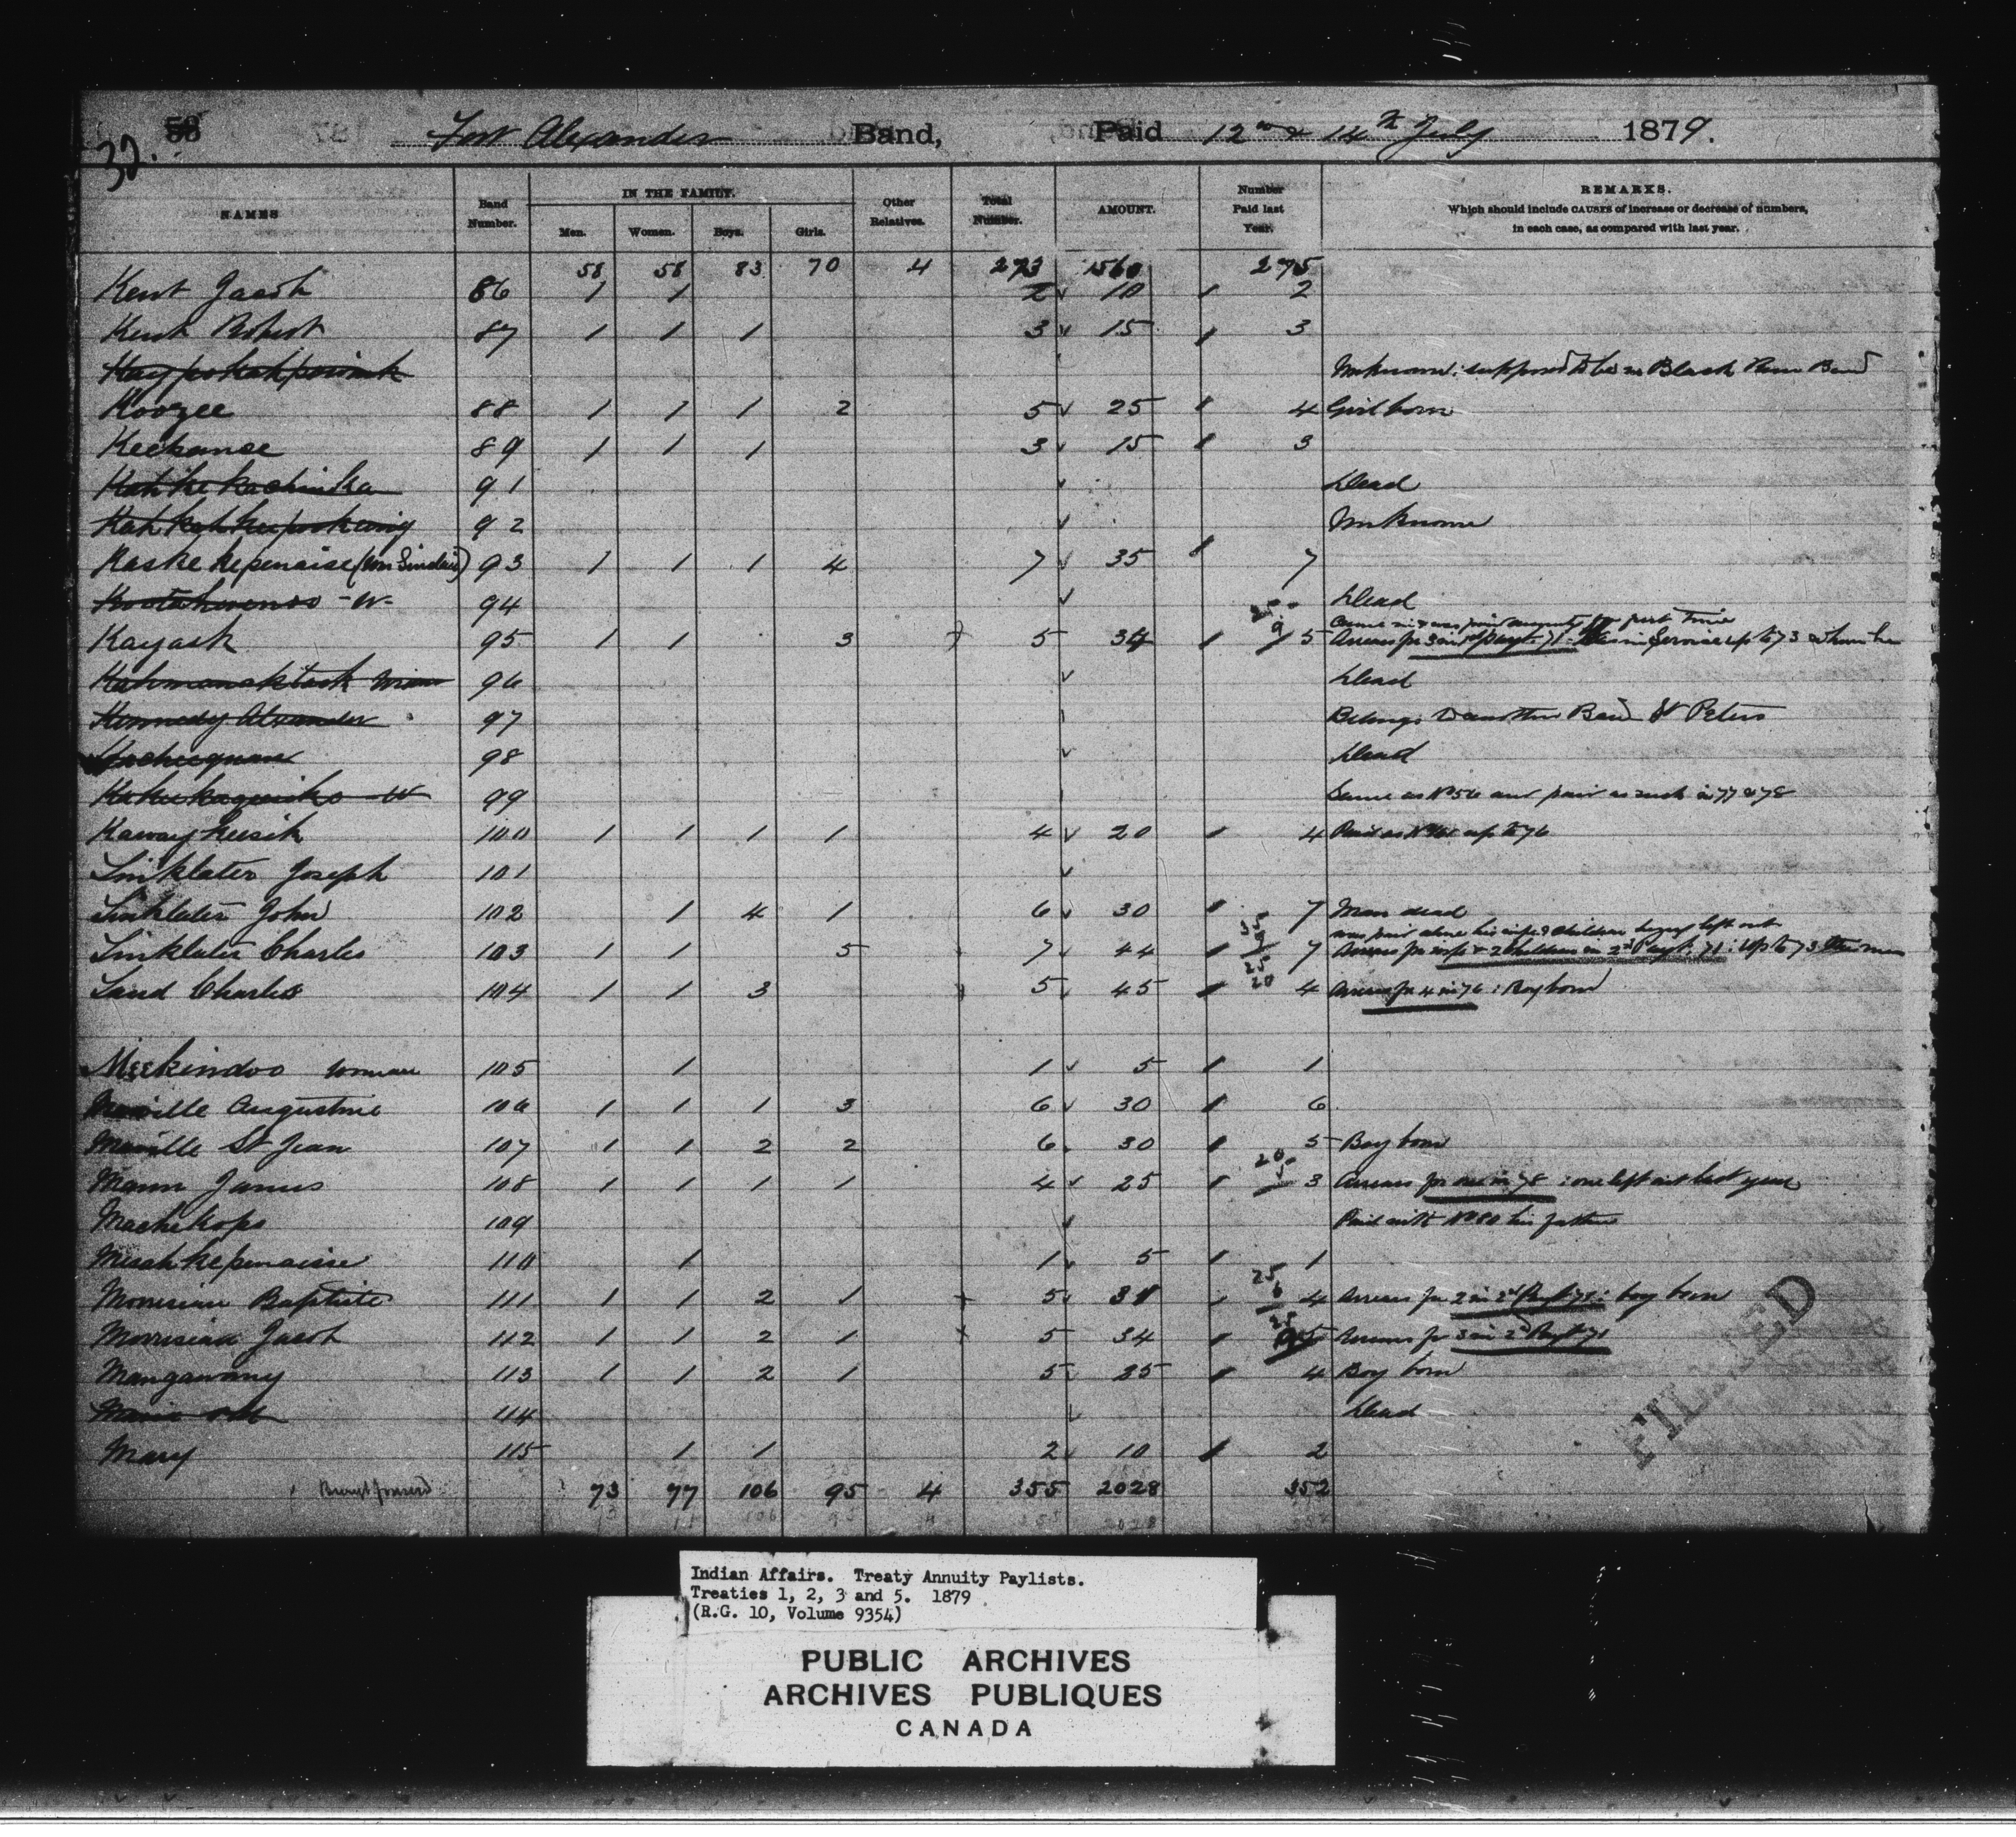 32. 58 Fort Alexander Band, Paid 12th & 14th July 1879.
NAMES Band Number. IN THE FAMILY. Men. Women. Boys. Girls. Other Relatives. Total Number. AMOUNT. Number Paid last Year. REMARKS.
Which should include CAUSES of increase or decrease of numbers,
in each case, as compared with last year.
58 58 83 70 4 273 1560 275
Kent Jacob 86 1 1 2 10 2
Kent Robert 87 1 1 1 3 15 3
Unknown: supposed to be in Black River Band
Koozee 88 1 1 1 2 5 25 4 Girl born
Keekanse 89 1 1 1 3 15 3
91 Dead
92 Unknown
Kaskekepenaise (Wm Sinclair) 93 1 1 1 4 7 35 7
-W- 94 Dead
Kayask 95 1 1 3 5 34 25 9 5 Arrears for 3 in Payt 71 up to 73
96 Dead
Kennedy Alexander 97 Belongs to another Band St Peters
98 Dead
W 99 Same as No 56 and paid as such in 77 & 78
Kawaykeesik 100 1 1 1 1 4 20 4 Paid as up to 76
Linklater Joseph 101
Linklater John 102 1 4 1 6 30 7 Man dead
was paid alone his wife & children being left out
Linklater Charles 103 1 1 5 7 44 35 9 7 Arrears for wife & 2 children in 2nd Payt. 71: Up to 73 the man
Laud Charles 104 1 1 3 5 45 25 20 4 Arrears for 4 in 76: Boy born
Meekindoo woman 105 1 1 5 1
Augustine 106 1 1 1 3 6 30 6
St Jean 107 1 1 2 2 6 30 5 Boy born
Mann James 108 1 1 1 1 4 25 20 5 3 Arrears for one in 78: one left out last year
Machekops 109 Paid with No 80 his father
Mesahkepenaise 110 1 1 5 1
Morrisian Baptiste 111 1 1 2 1 5 31 25 6 4 Arrears for 2 in 2nd Payt 71: boy born
Morrisian Jacob 112 1 1 2 1 5 34 25 9 5 Arrears for 3 in 2nd Payt 71
Mangawany 113 1 1 2 1 5 25 4 Boy born
114 Dead
Mary 115 1 1 2 10 2
Brought forward 73 77 106 95 4 355 2028 352
FILMED
Indian Affairs. Treaty Annuity Paylists.
Treaties 1, 2, 3 and 5. 1879
(R.G. 10, Volume 9354)
PUBLIC ARCHIVES
ARCHIVES PUBLIQUES
CANADA